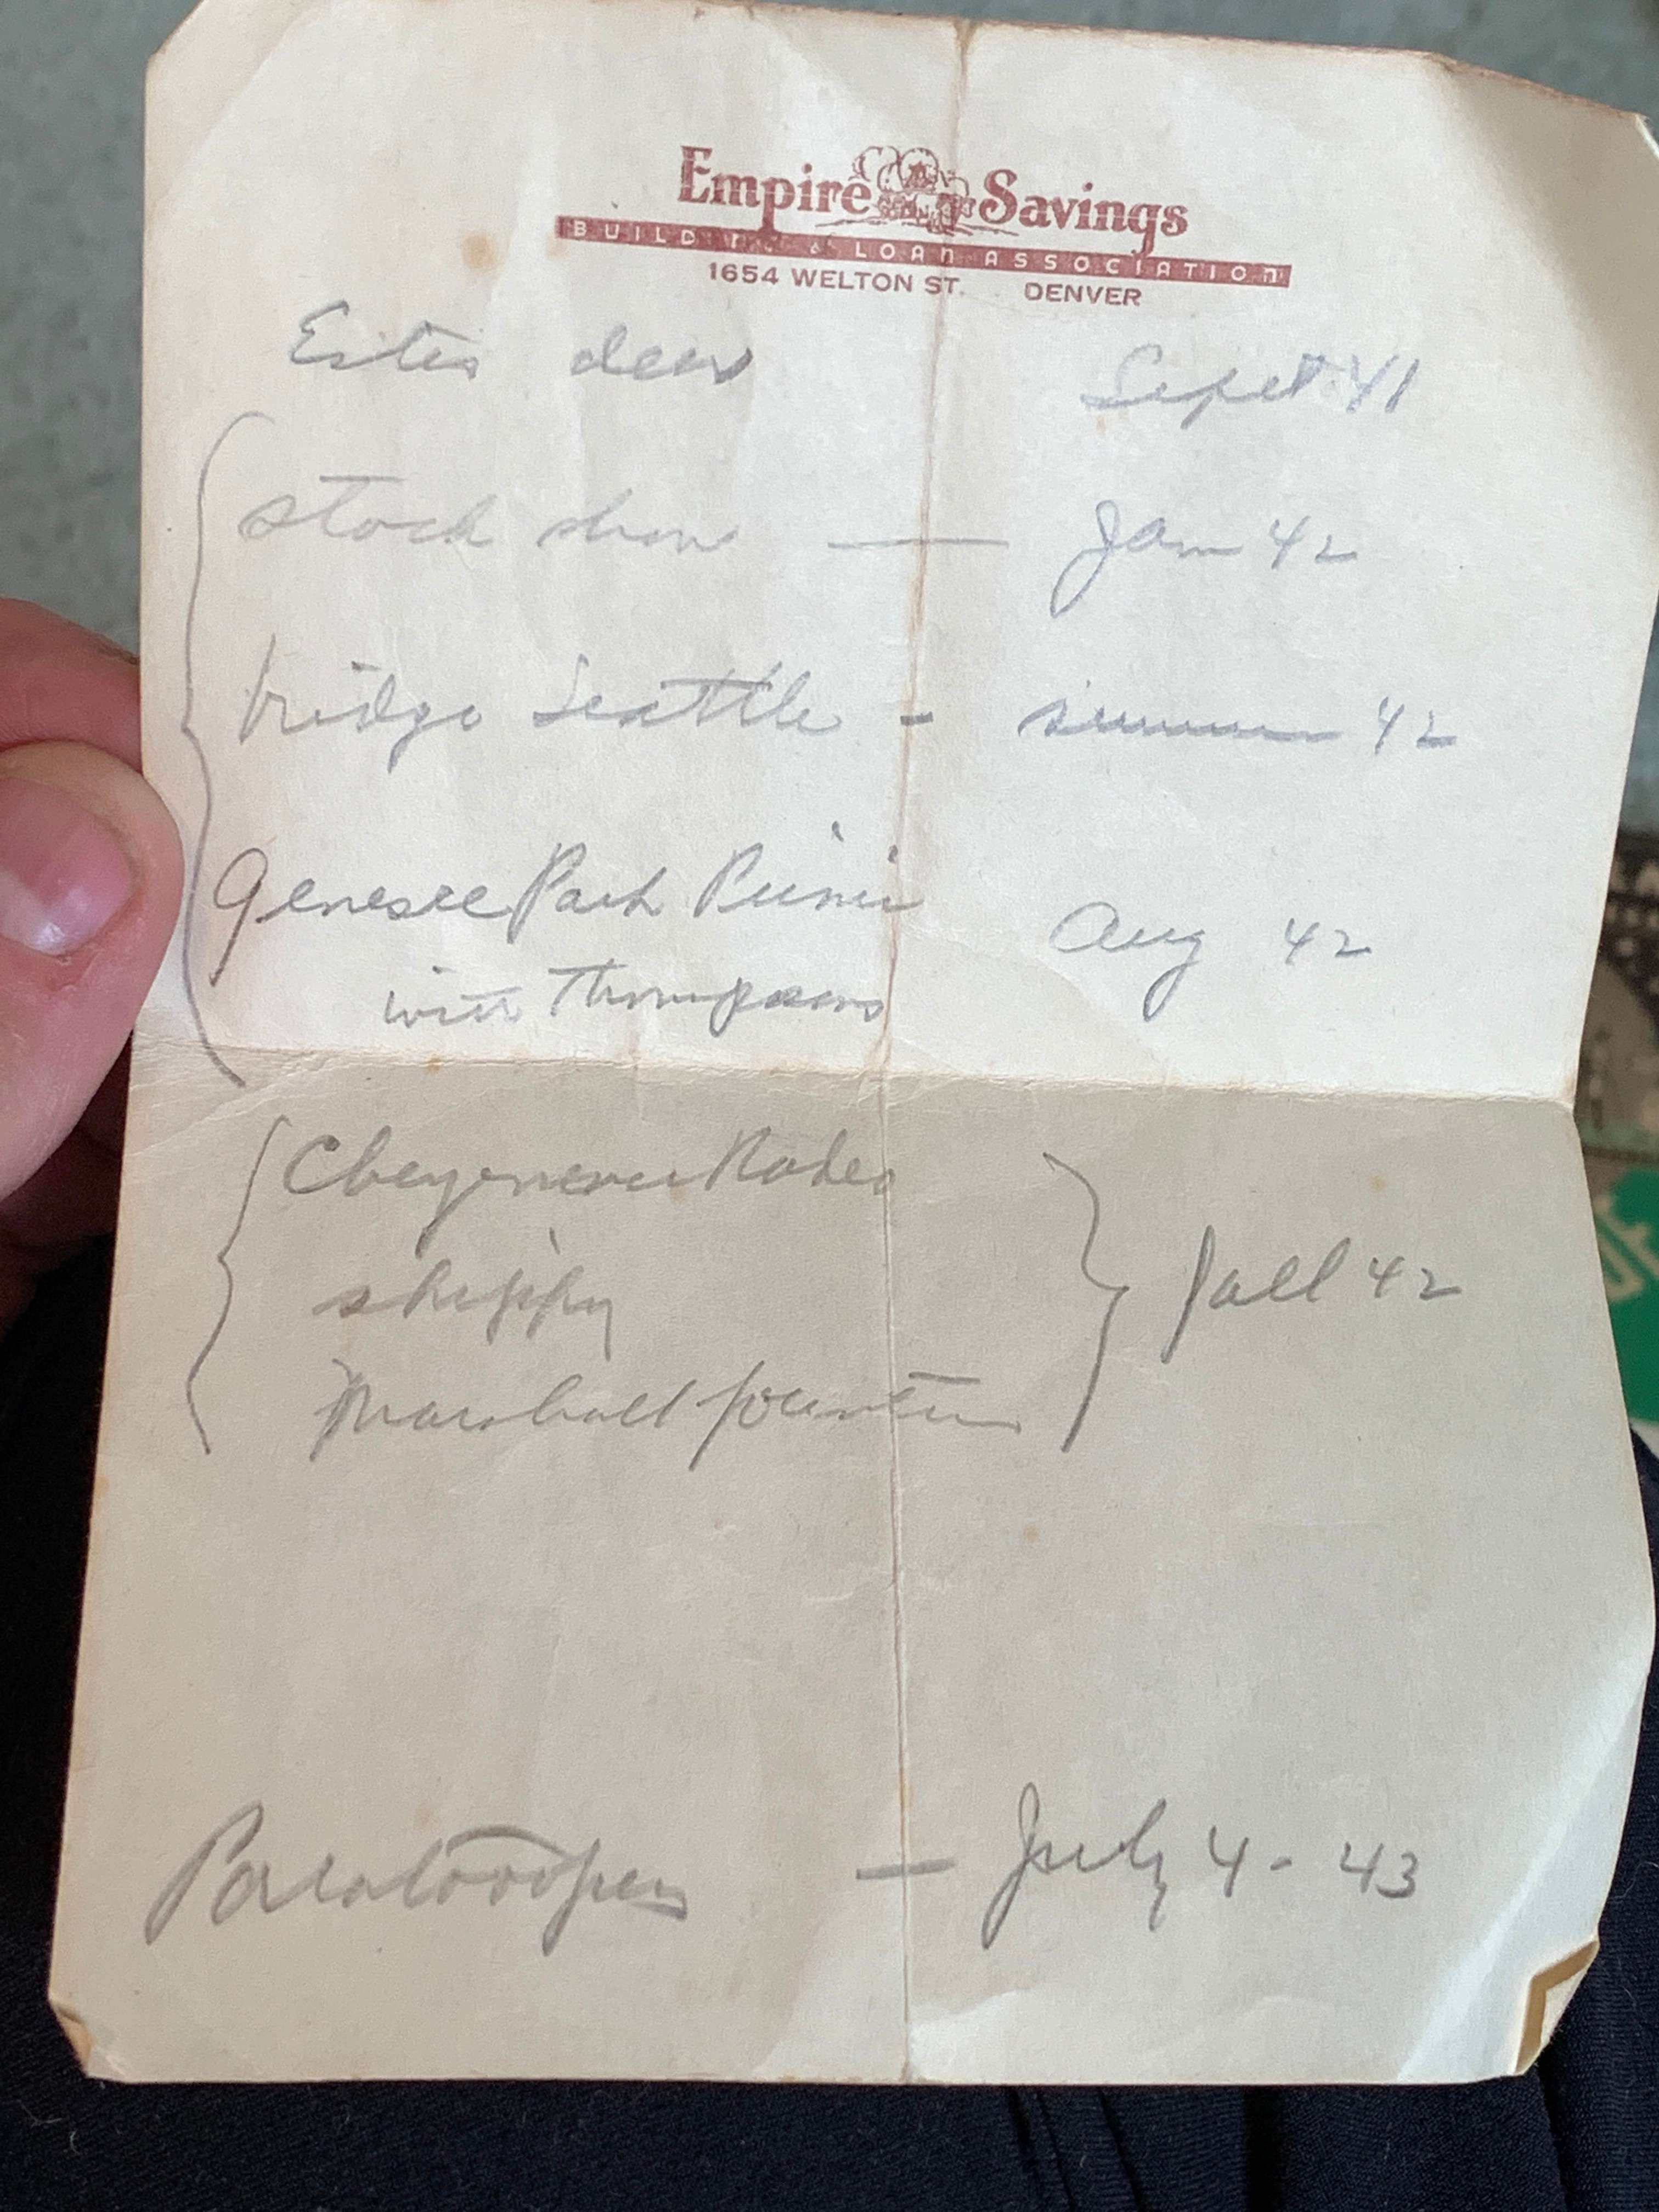 Empire Savings
BUILDING & LOAN ASSOCIATION
1654 WELTON ST. DENVER
Estes deer Sept 41
stock show — Jan 42
bridge Seattle - summer 42
Genesee Park Picnic Aug 42
with Thompsons
Cheyenne Rodeo
skippy fall 42
Marshall fountain
Paratroopers — July 4 - 43